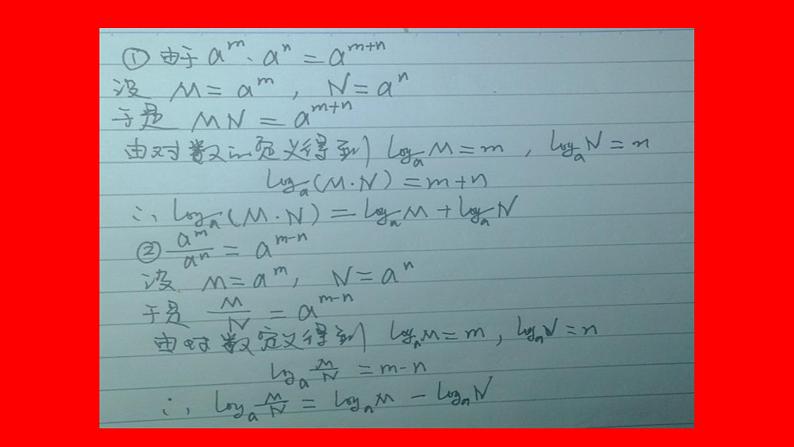 ① 由于 a^m · a^n = a^{m+n}
设 M = a^m , N = a^n
于是 MN = a^{m+n}
由对数的定义得到 log_a M = m , log_a N = n
log_a (M·N) = m+n
∴ log_a (M·N) = log_a M + log_a N
② a^m/a^n = a^{m-n}
设 M = a^m , N = a^n
于是 M/N = a^{m-n}
由对数定义得到 log_a M = m , log_a N = n
log_a M/N = m-n
∴ log_a M/N = log_a M - log_a N